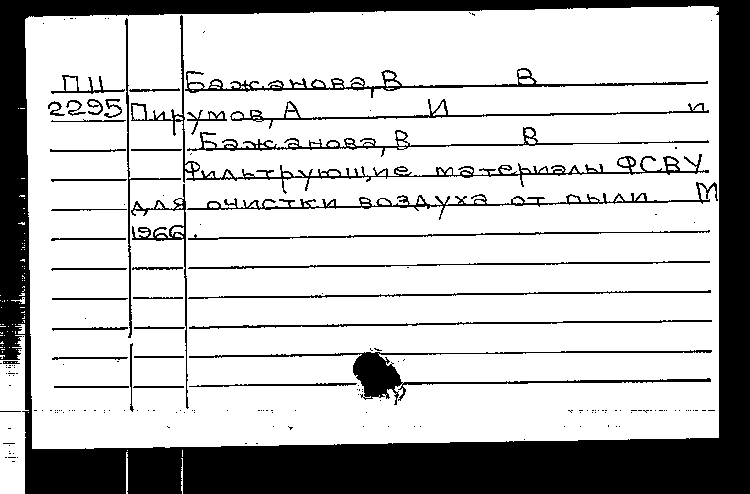 ПИ Бажанова, В В
2295 Пирумов, А И и
Бажанова, В В
Фильтрующие материалы ФСВУ
для очистки воздуха от пыли. М
1966.